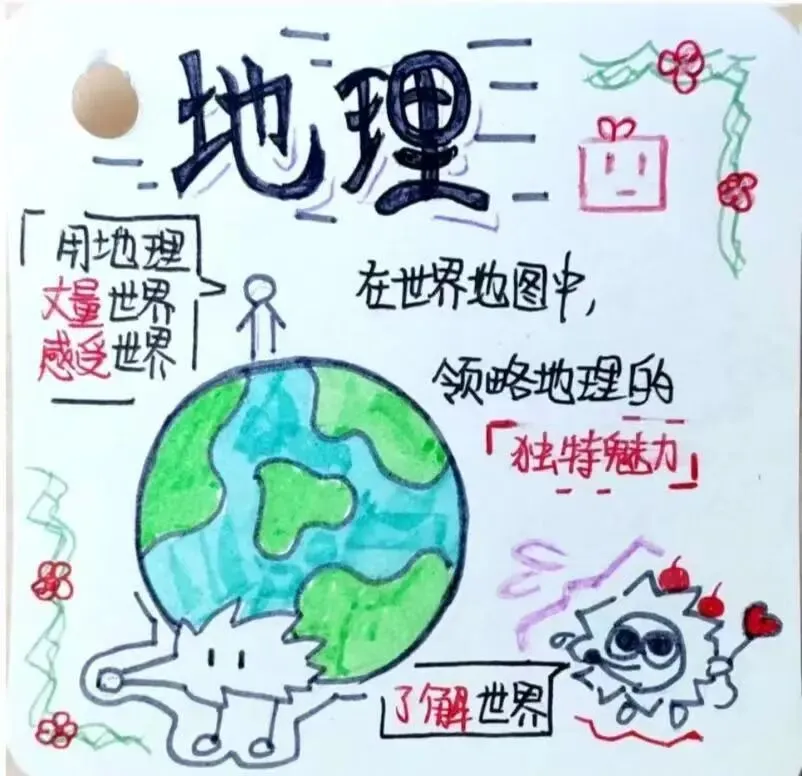 地理
「用地理
丈量世界
感受世界
在世界地图中,
领略地理的
「独特魅力」
了解世界